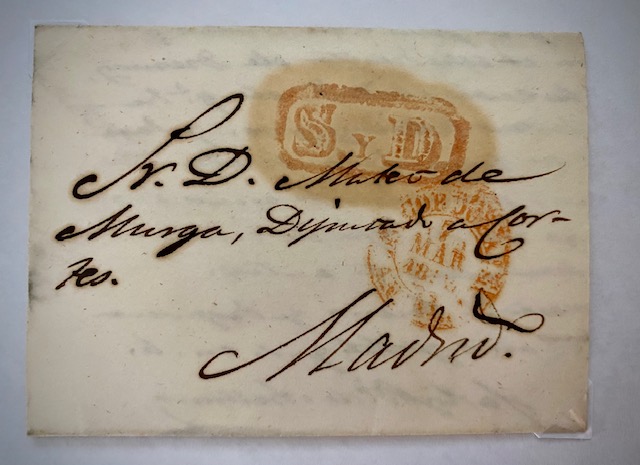 S Y D
Sr. D. Mateo de
Murga, Diputado a Cor-
tes.
MAR
Madrid.